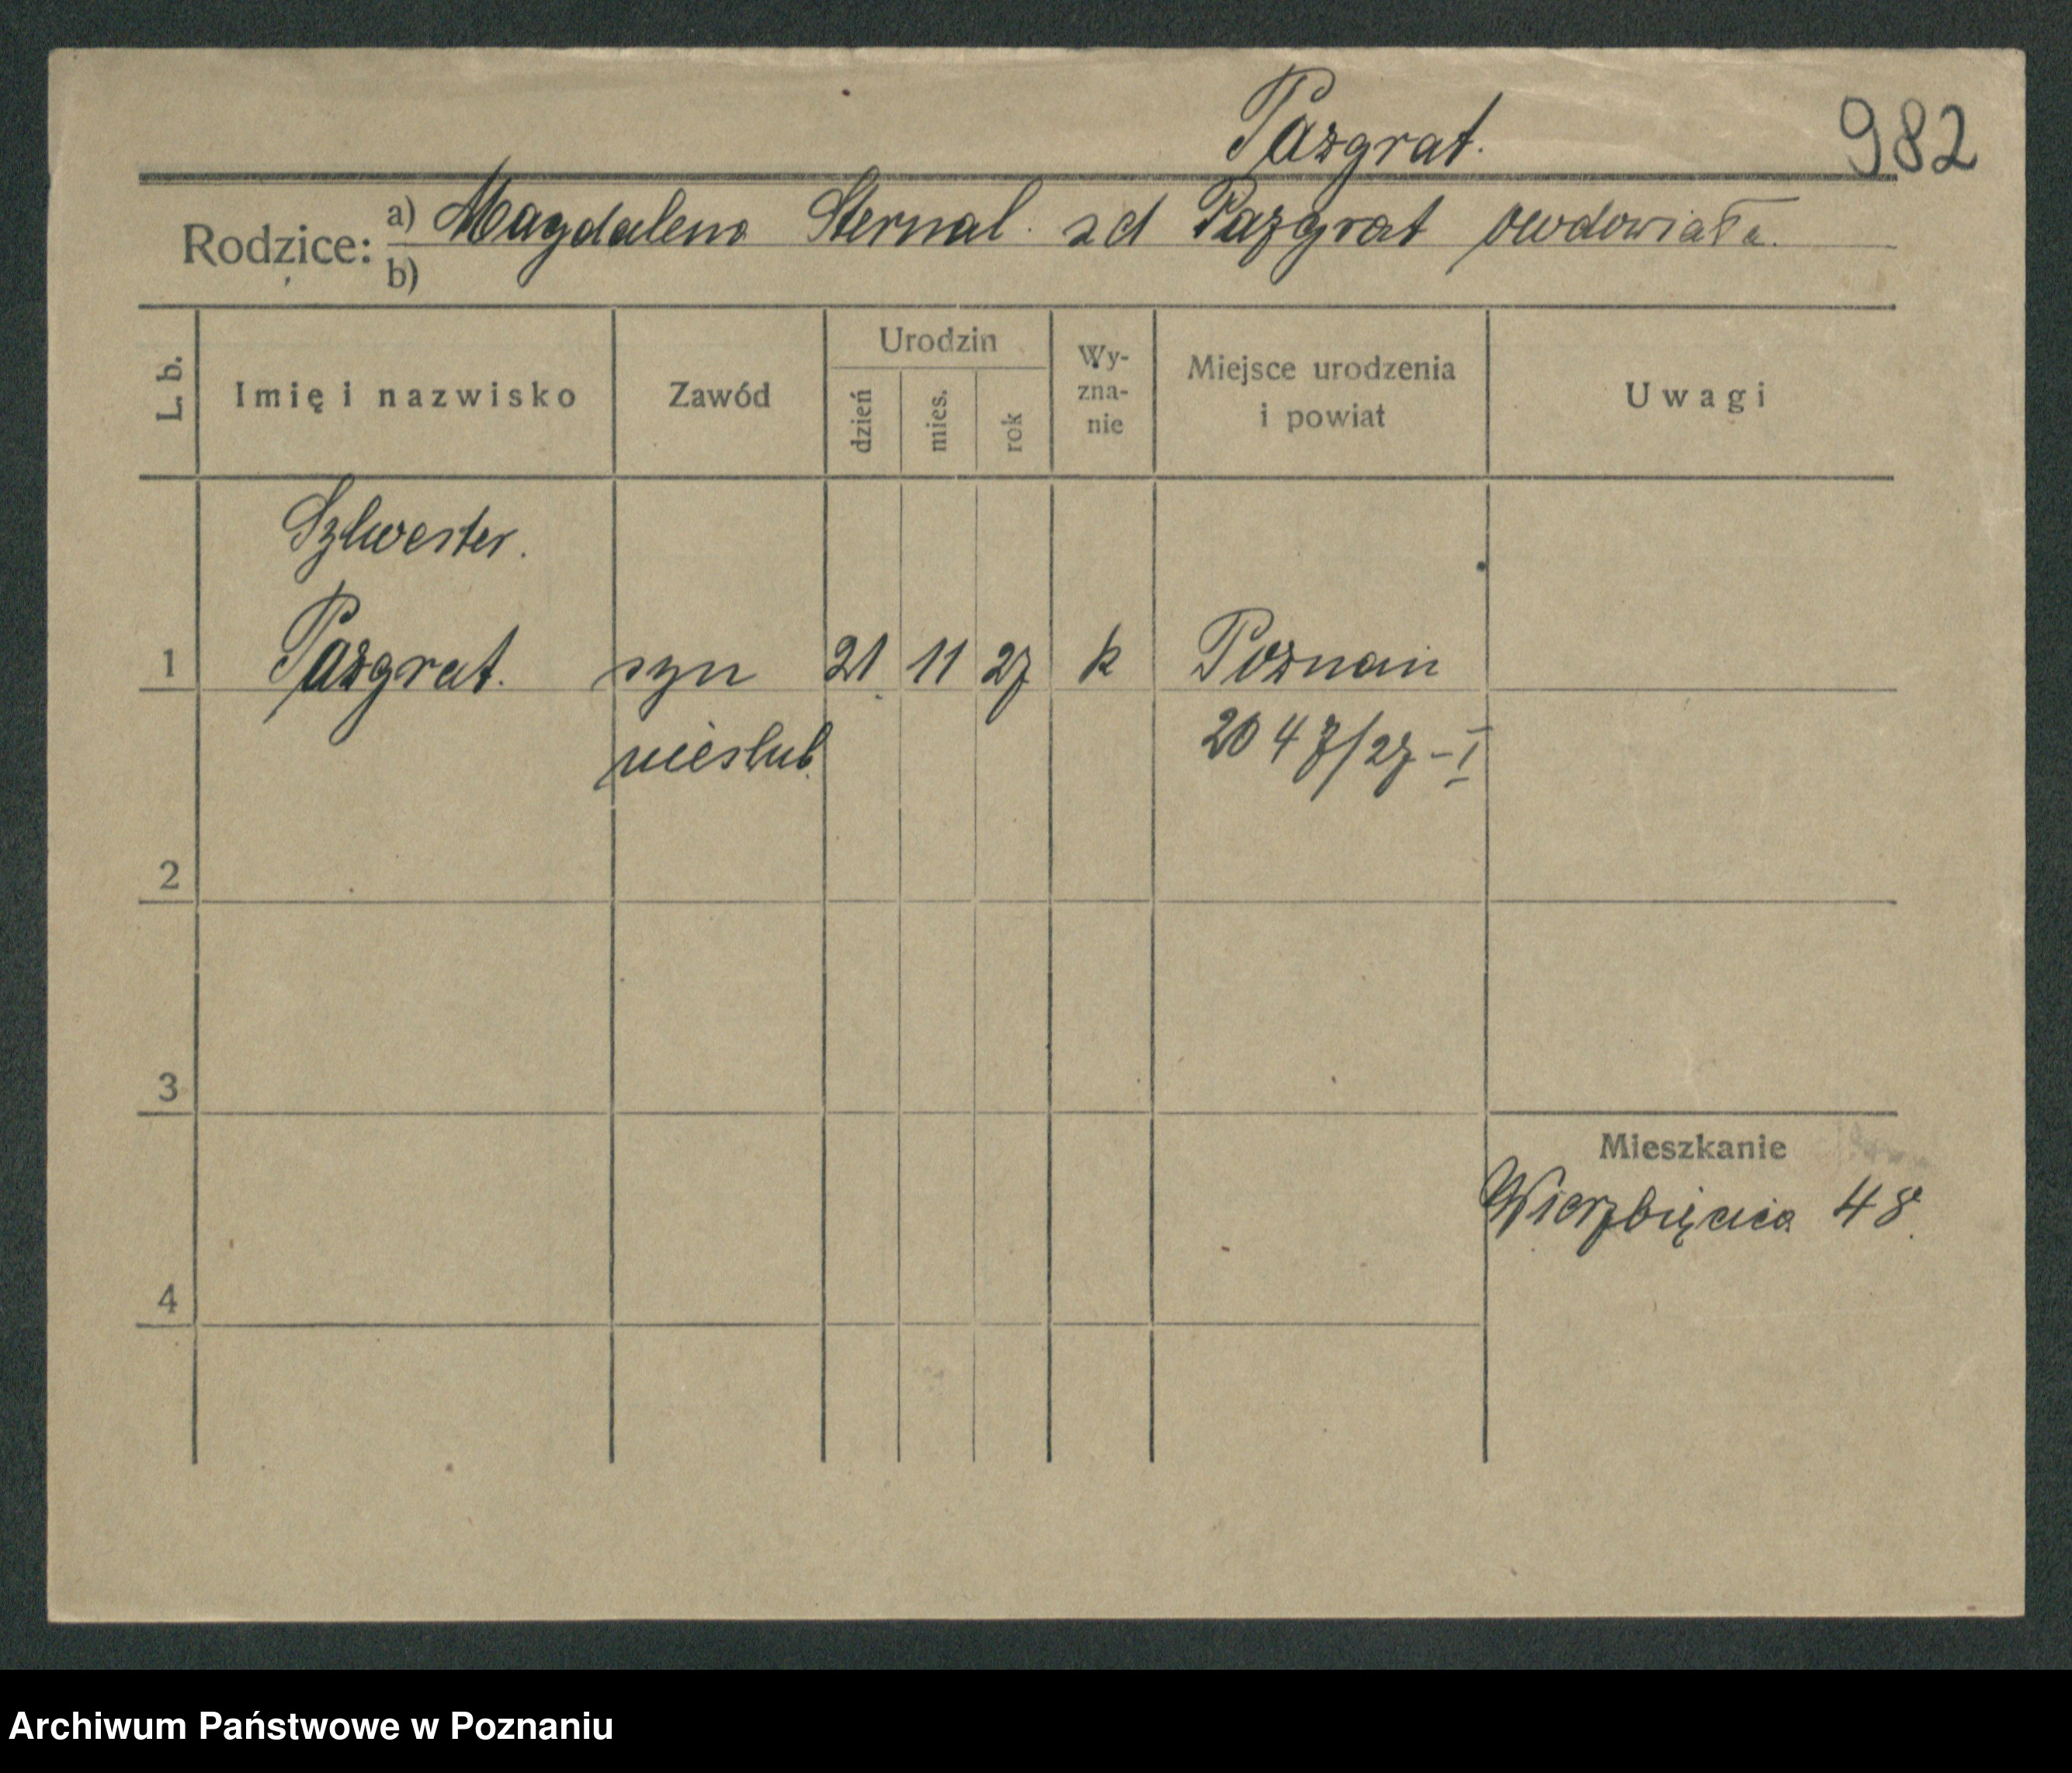 Pazgrat.
982
Rodzice: a) Magdalena Sternal zd Pazgrat owdowiała.
b)
L. b.
Imię i nazwisko
Zawód
Urodzin
dzień
mies.
rok
Wy-
zna-
nie
Miejsce urodzenia
i powiat
Uwagi
Sylwester.
1 Pazgrat. syn 21 11 27 k Poznań
nieślub. 2047/27-I
2
3
Mieszkanie
Wierzbięcice 48.
4
Archiwum Państwowe w Poznaniu